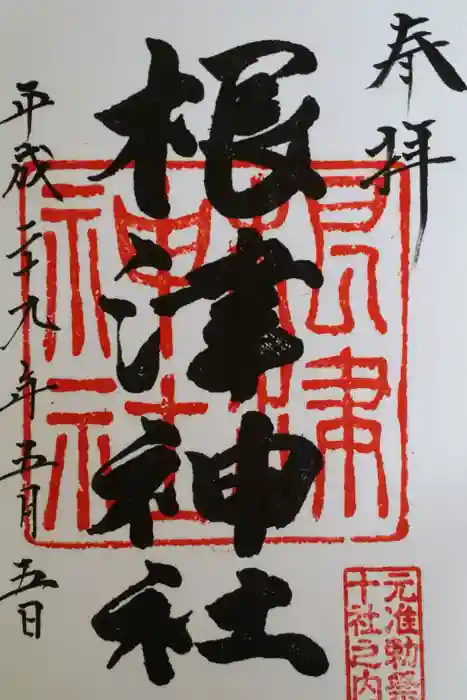 奉拝
根津神社
根津神社
平成二十九年五月五日
元准勅祭
十社之内